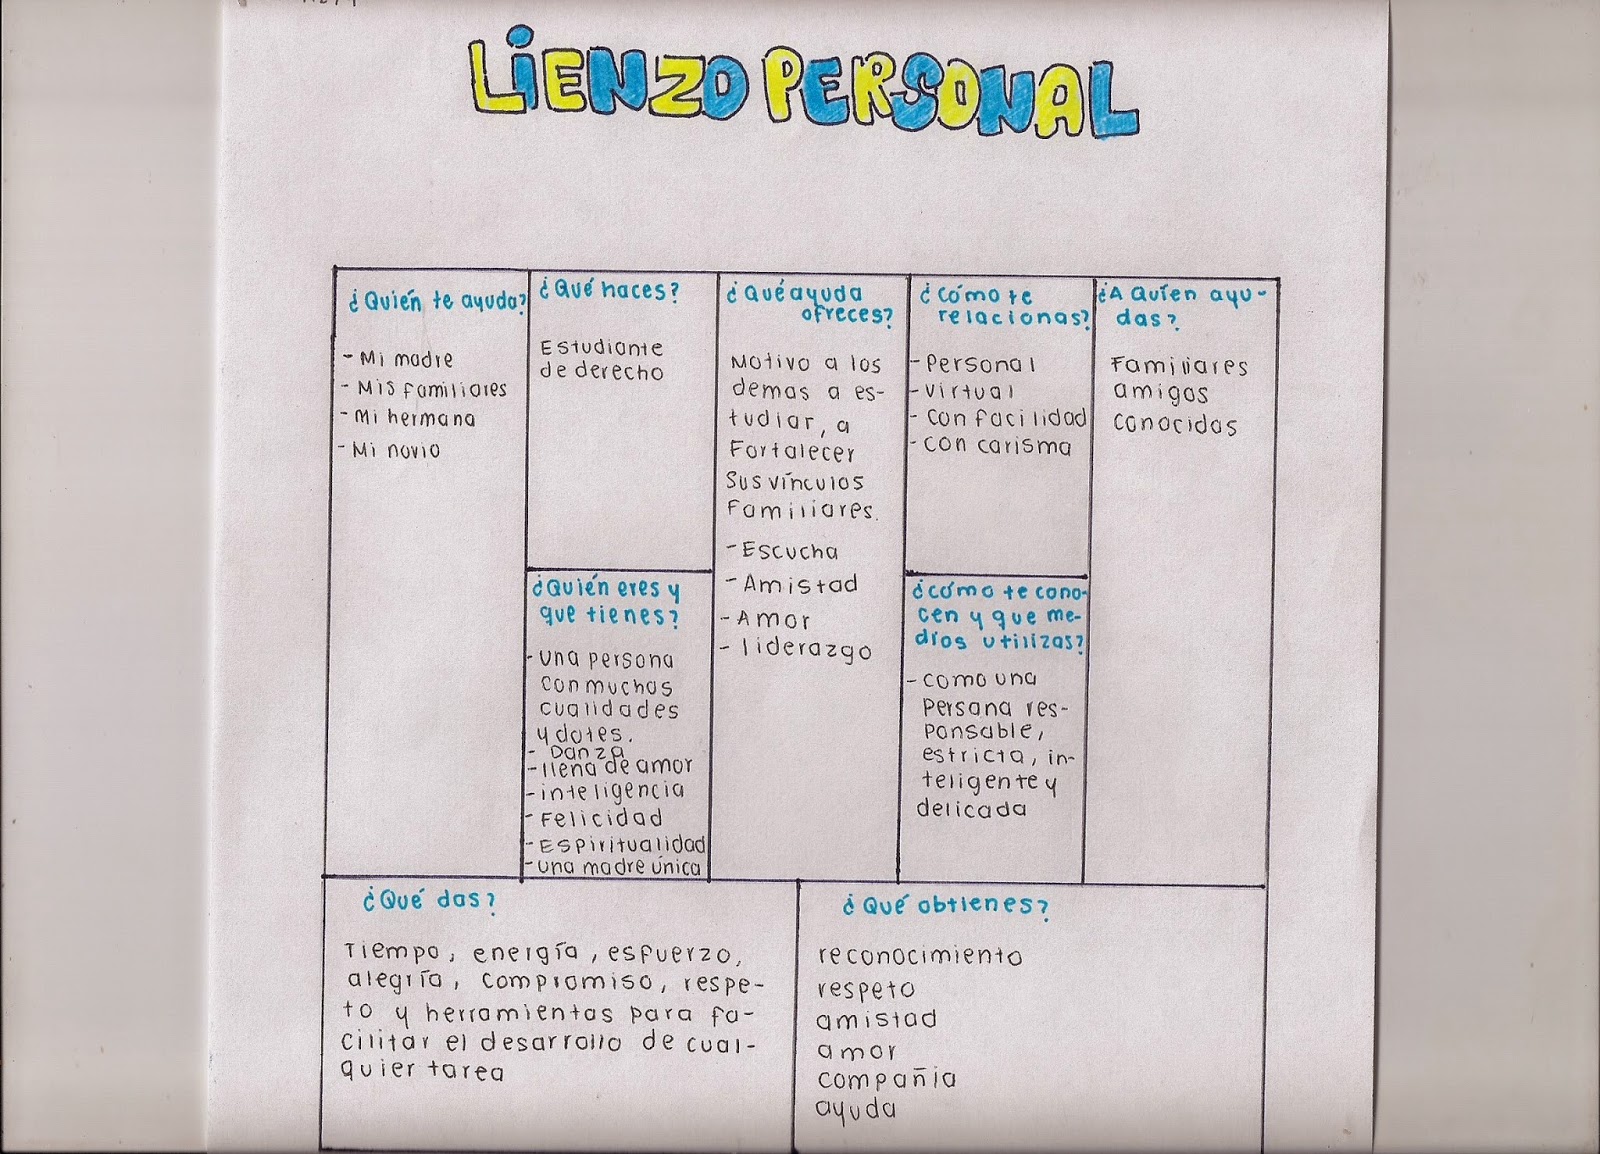 LIENZO PERSONAL
¿Quién te ayuda?
- Mi madre
- Mis familiares
- Mi hermana
- Mi novio
¿Qué haces?
Estudiante
de derecho
¿Quién eres y
que tienes?
- una persona
con muchas
cualidades
y dotes.
- Danza
- llena de amor
- inteligencia
- Felicidad
- Espiritualidad
- una madre única
¿Qué ayuda
ofreces?
Motivo a los
demas a es-
tudiar, a
Fortalecer
Sus vínculos
Familiares.
- Escucha
- Amistad
- Amor
- liderazgo
¿Cómo te
relacionas?
- Personal
- virtual
- con facilidad
- con carisma
¿cómo te cono-
cen y que me-
dios utilizas?
- como una
persona res-
ponsable,
estricta, in-
teligente y
delicada
¿A Quíen ayu-
das?
Familiares
amigos
conocidos
¿Qué das?
Tiempo, energía, esfuerzo,
alegría, compromiso, respe-
to y herramientas para fa-
cilitar el desarrollo de cual-
quier tarea
¿Qué obtienes?
reconocimiento
respeto
amistad
amor
compañia
ayuda